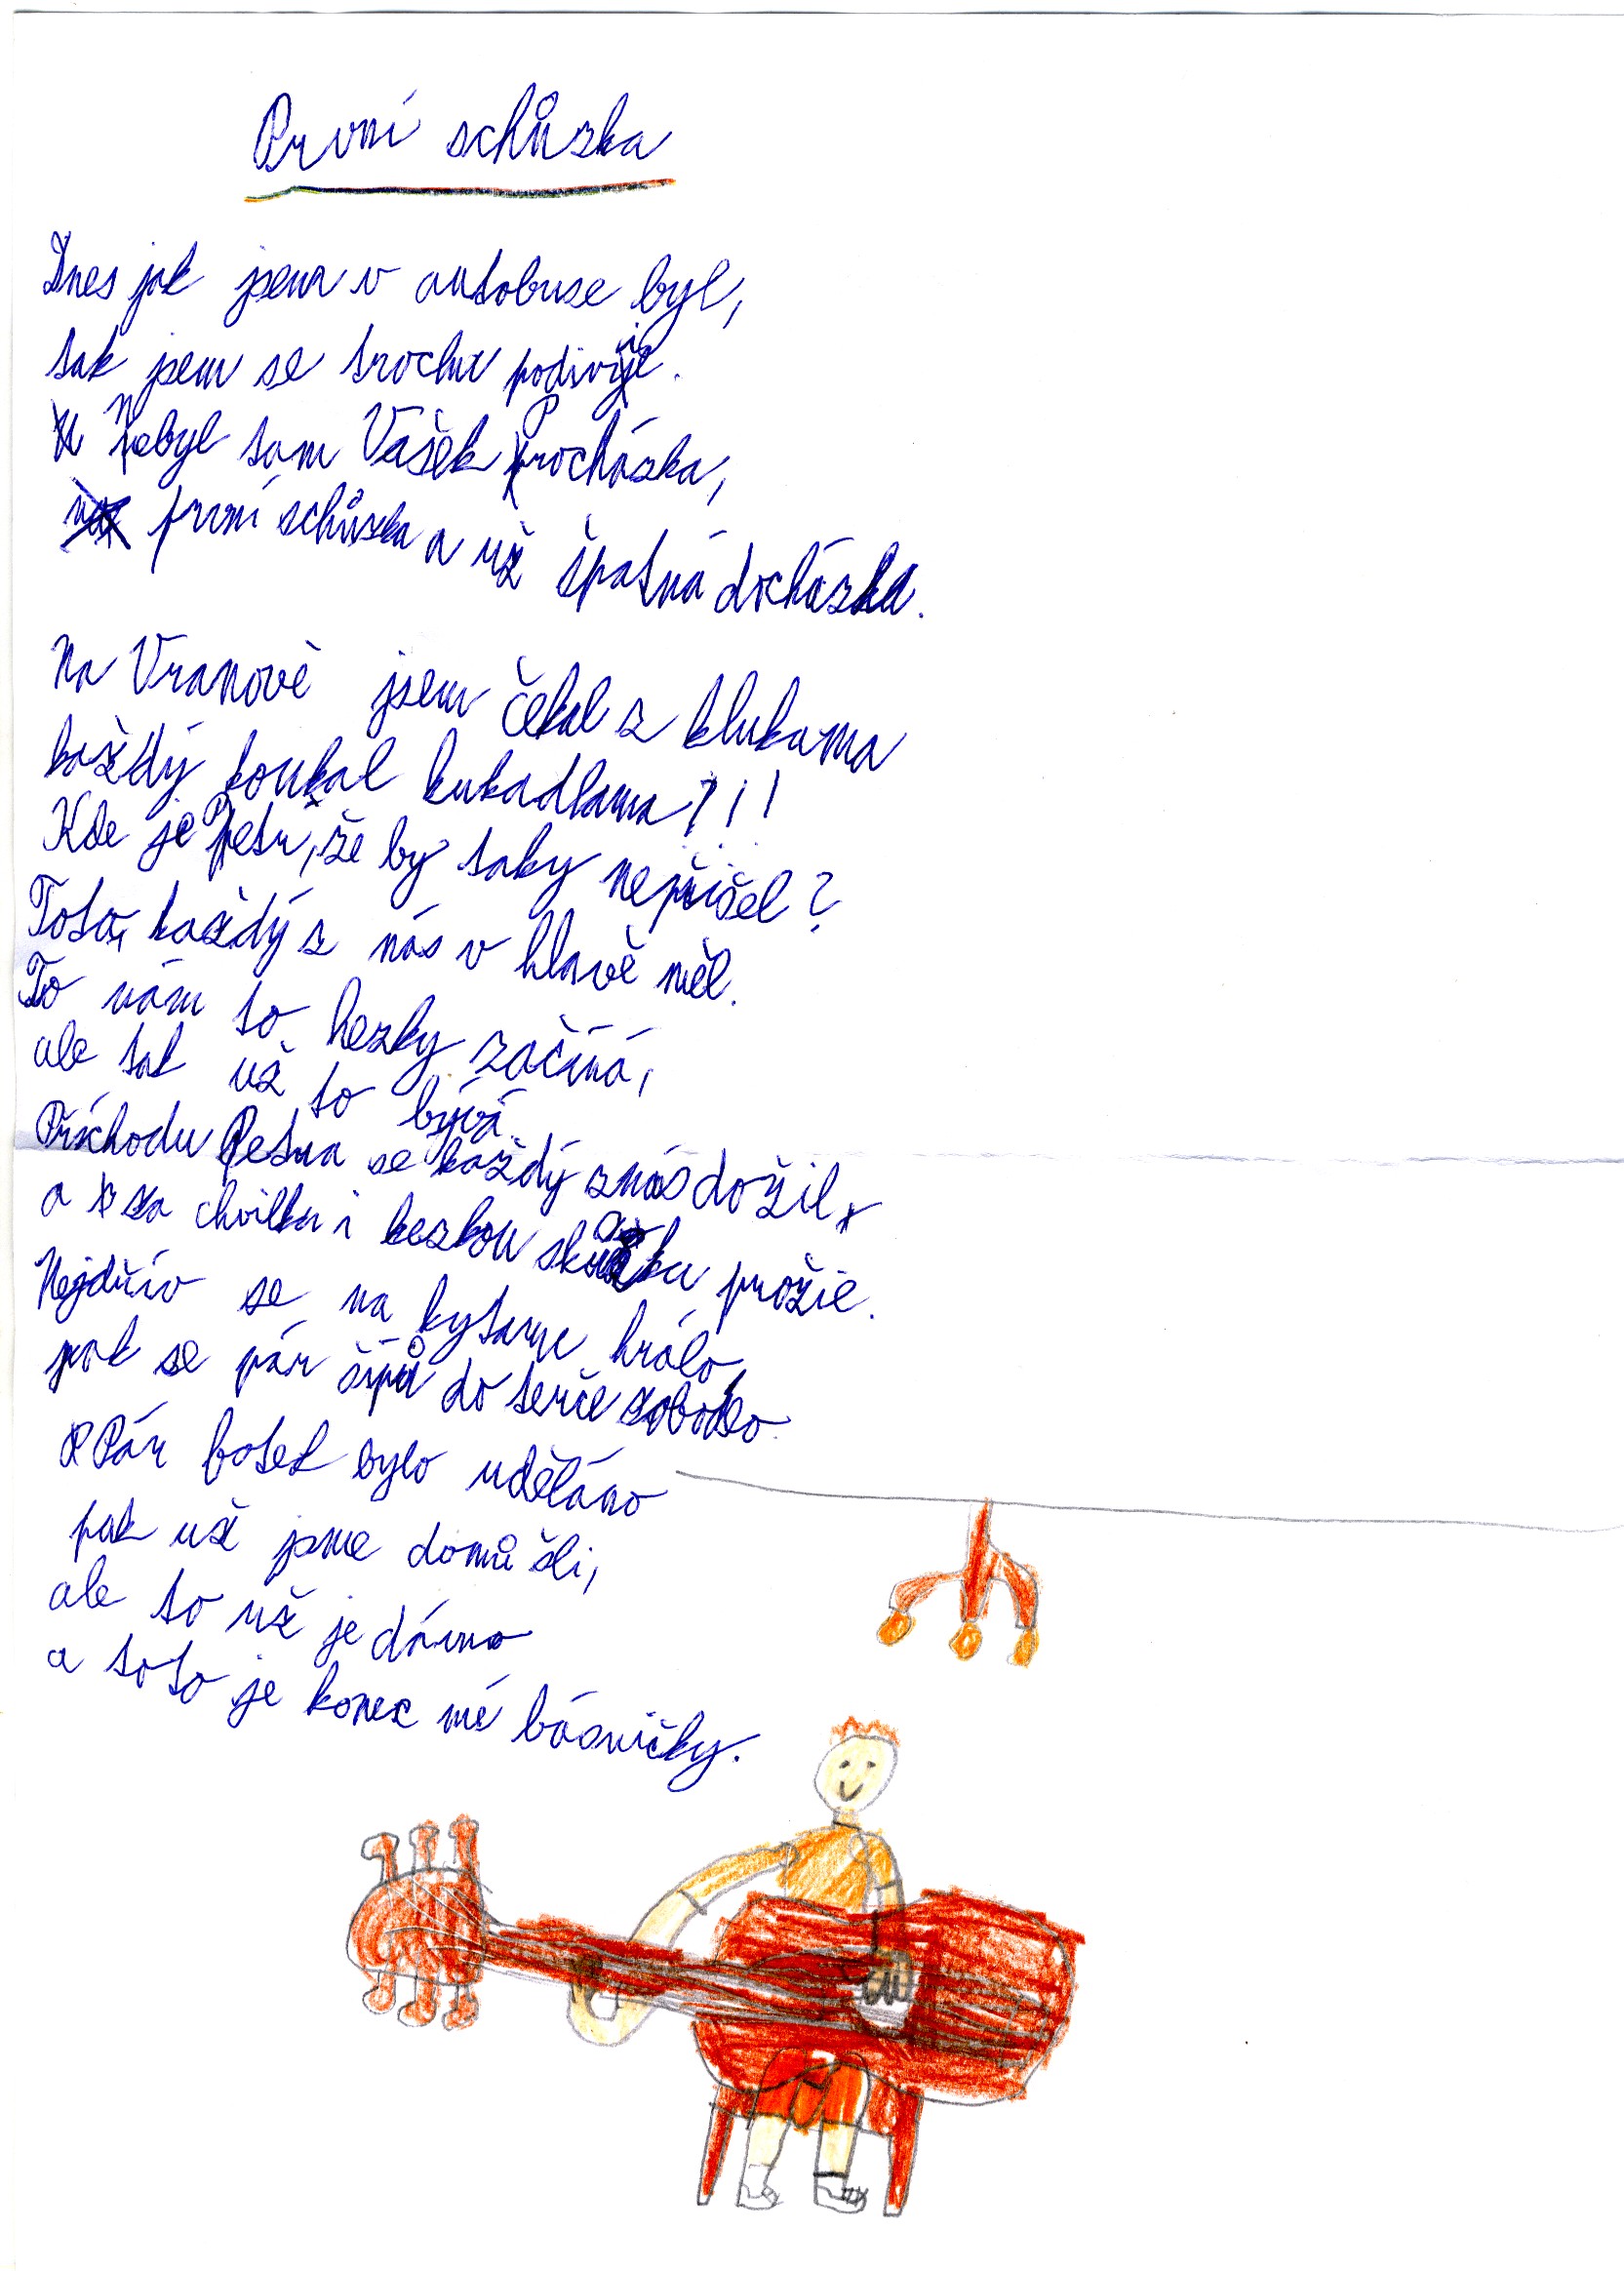 První schůzka
Dnes jak jsem v autobuse byl,
tak jsem se trochu podivil.
Nebyl tam Vašek Procházka,
první schůzka a už špatná docházka.
Na Vranově jsem čekal z klukama
každý koukal kukadlama?!!
Kde je Petr, že by taky nepřišel?
Toto, každý z nás v hlavě měl.
To nám to hezky začíná,
ale tak už to bývá.
Příchodu Petra se každý znás dožil,
a za chvilku i hezkou prožil.
Nejdřív se na kytaru hrálo,
pak se pár šípů do terče
Pár fotek bylo uděláno
pak už jsme domů šli,
ale to už je dávno
a toto je konec mé básničky.